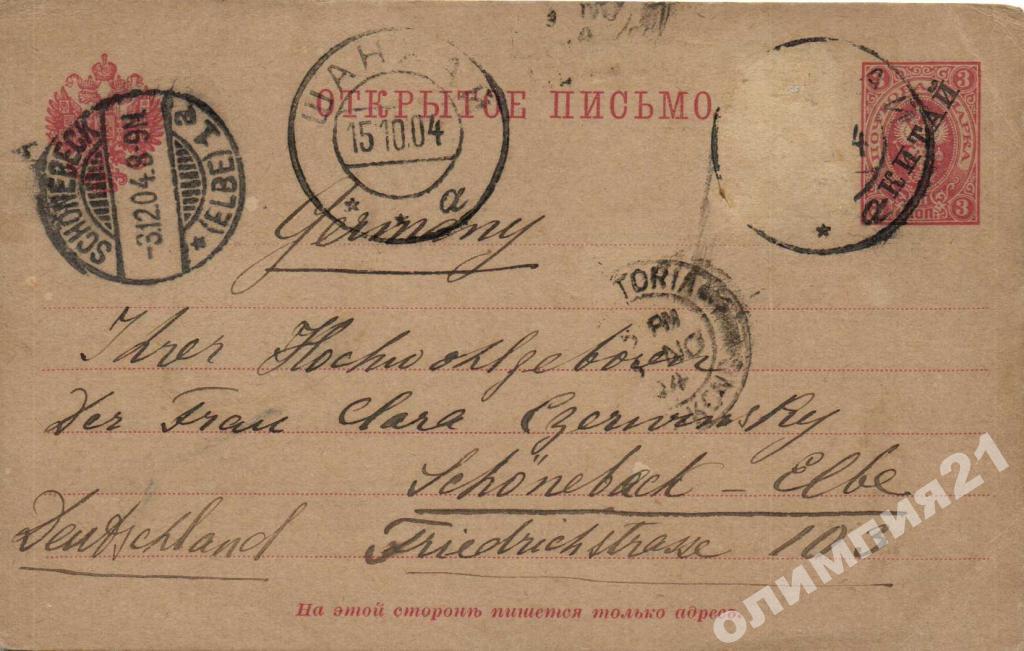 ОТКРЫТОЕ ПИСЬМО
ШАНХАЙ
15 10.04
a
SCHÖNEBECK
-3.12.04.8-9N.
(ELBE) 1
3
3
МАРКА
КИТАЙ
3
4
a
Germany
TORIA
PM
NO
KON
Ihrer Hochwohlgeboren
Der Frau Clara Czerwinsky
Schönebeck - Elbe
Deutschland Friedrichstrasse 10
На этой сторонѣ пишется только адресъ.
олимпия21